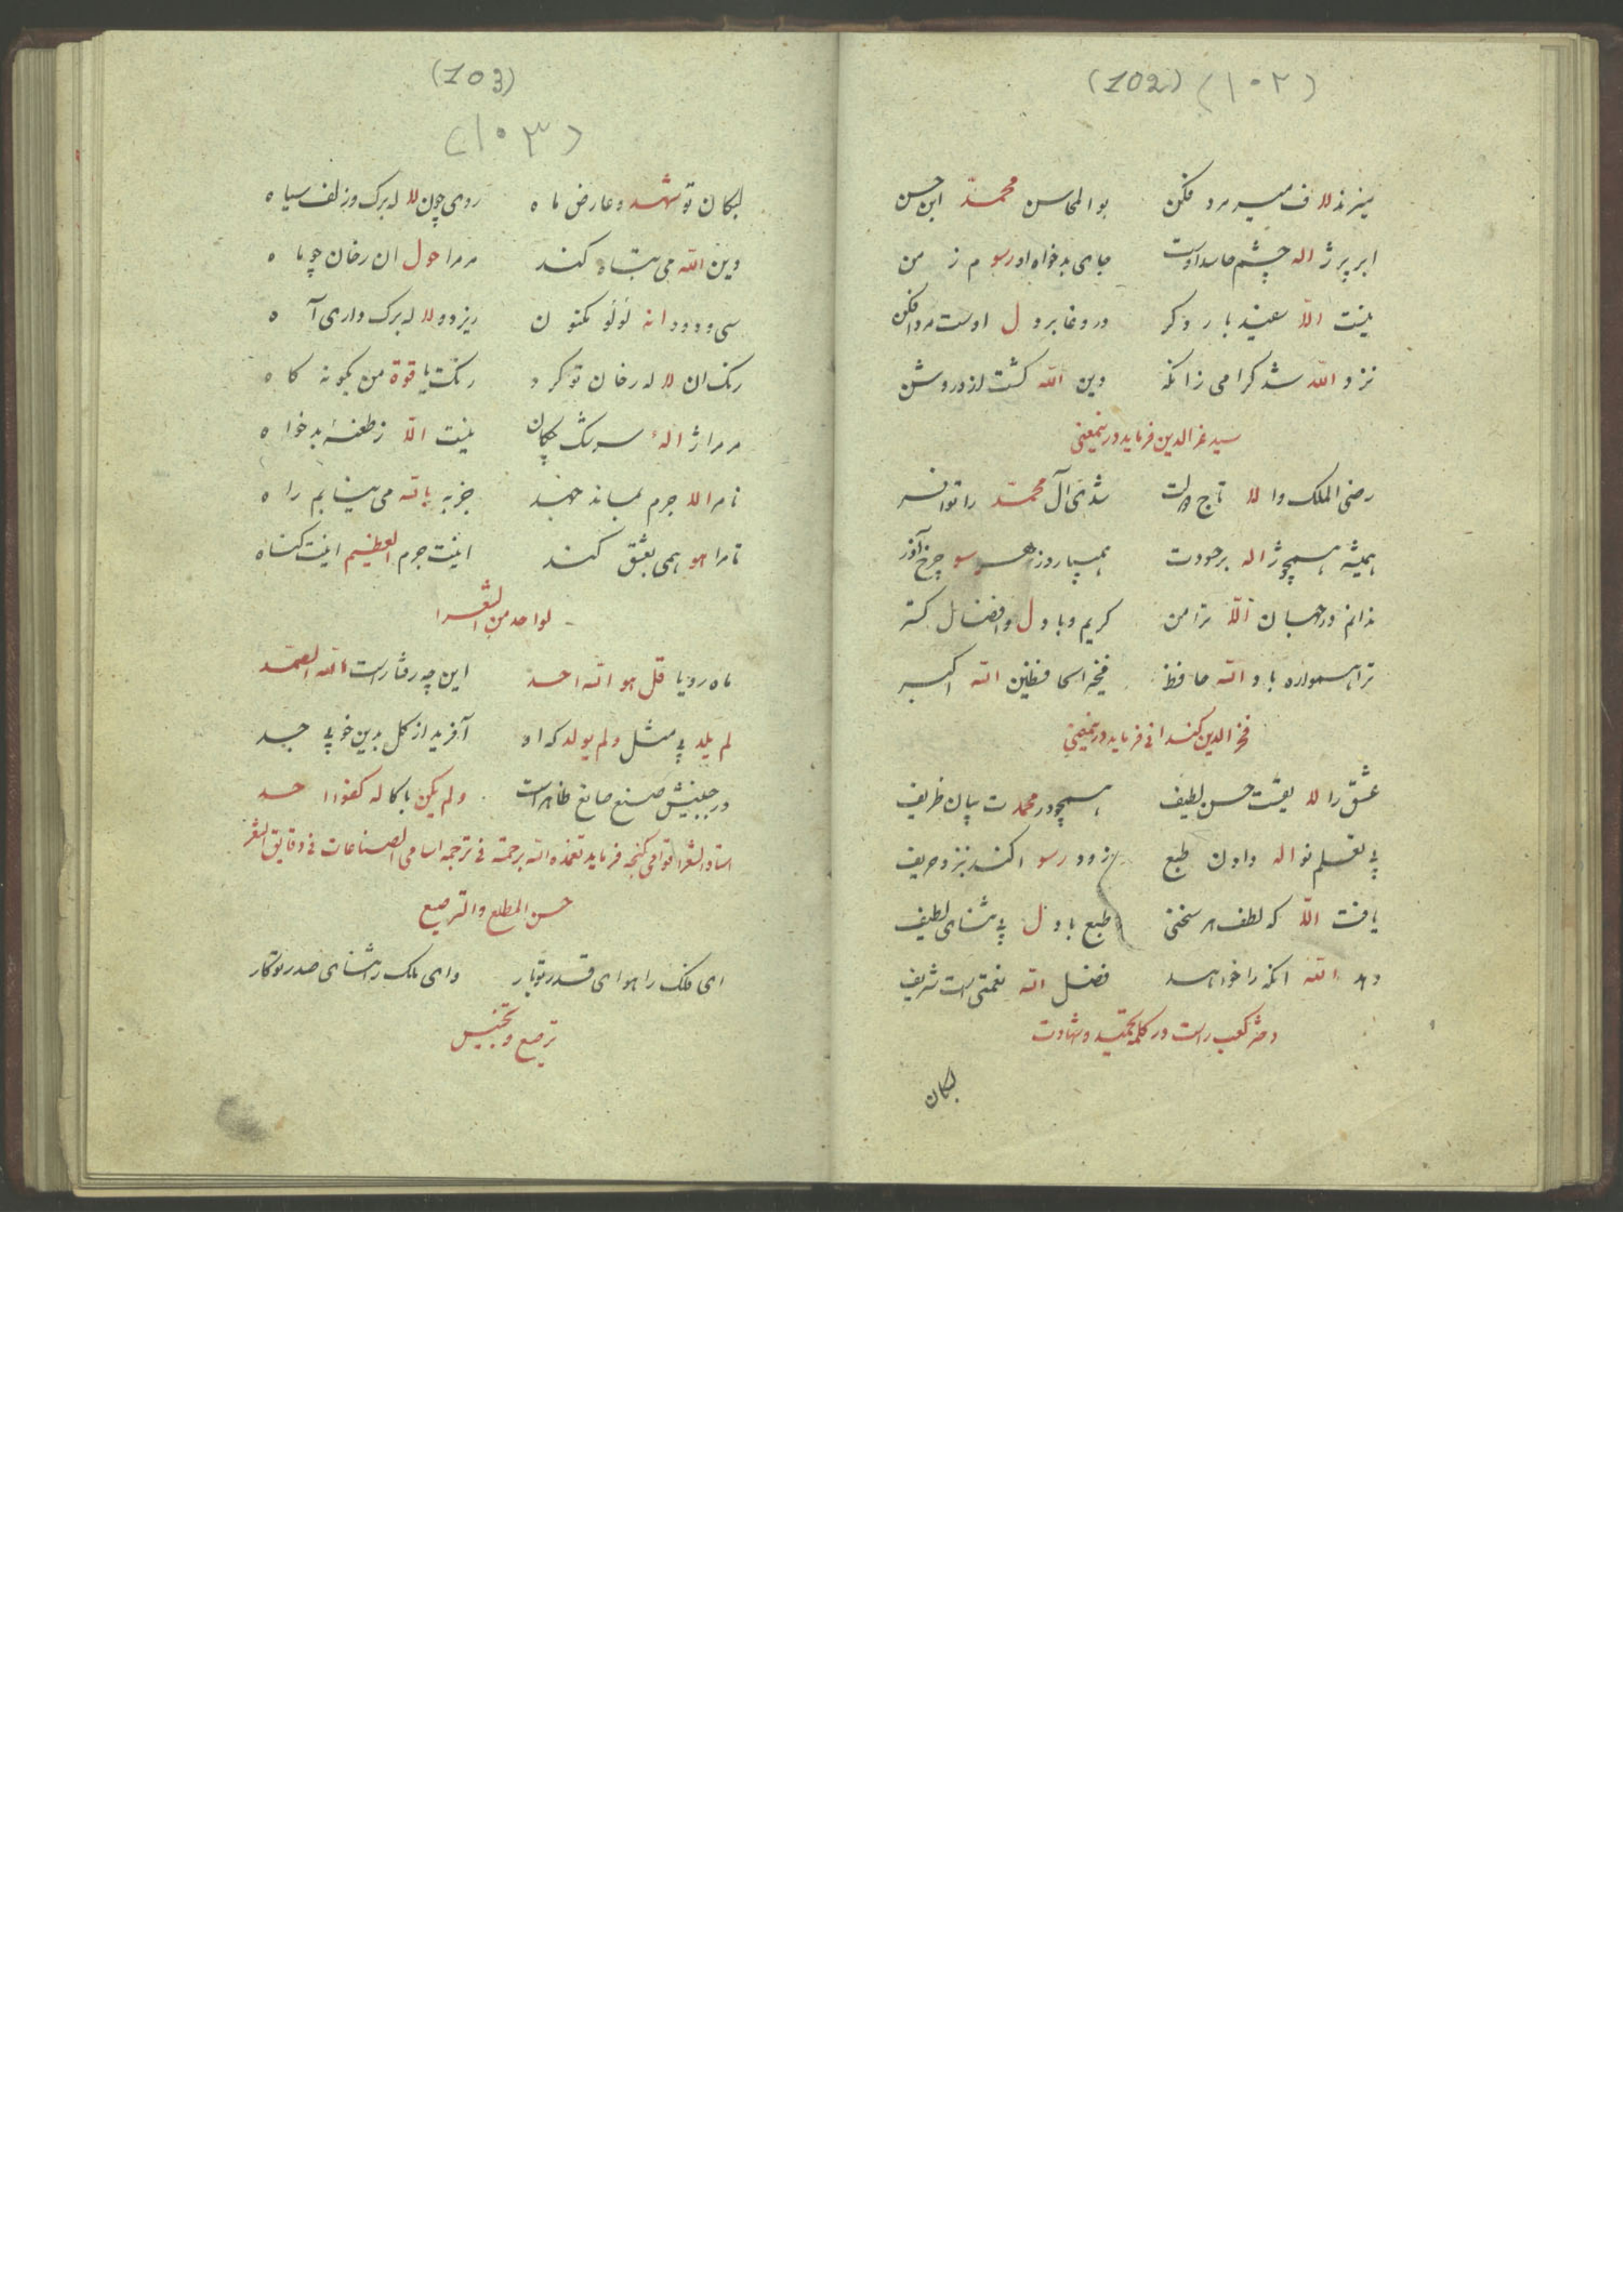 (102) (١٠٢)
میزند لا ف میر مرد فکن بو المحاسن محمد ابن حسن
ابر پر ژ اله چشم حاسد اوست جای بدخواه او رسو م ز من
نیست الا سعید با ر د کر در وغا بر د ل اوست مرد افکن
نزد الله شد کرامی زانکه دین الله کشت ازو روشن
سید عز الدین فرماید درینمعنی
رضی الملک وا لا تاج دولت شدی آل محمد را تو افسر
همیشه همچو ژ اله بر حسودت همی بارد ز هر سو چرخ آذر
ندانم در جهان الا ترا من کریم و با د ل و افضال کستر
ترا همواره باد الله حافظ فخیر الحافظین الله اکبر
فخر الدین فرماید درینمعنی
عشق را لا یقست حسن لطیف همچو در محمد ت بیان ظریف
بی تعلم نو اله دادن طبع زود رسو ا کند بنزد حریف
یافت الا که لطف هر سخنی طبع با د ل بی ثنای لطیف
دهد الله انکه را خواهد فضل الله نعمتی است شریف
در کلمه و شهادت
لبکان
(103)
(١٠٣)
لبکان تو شهد و عارض ما ه روی چون لا له برک و زلف سیا ه
دین الله می تباه کند مر مرا حول ان رخان چو ما ه
سی و دو دانه لؤلؤ مکنو ن ریز دو لا له برک داری آ ه
رنک ان لا له رخان تو کرد رنک یا قوة من بکونه کا ه
مر مرا ژ الهٔ سرشک چکان نیست الا ز طعنهٔ بدخوا ه
نامرا لا جرم نماند جز به بالله می نیابم را ه
تا مرا هو همی بعشق کند اینت جرم العظیم اینت کناه
لواحد من الشعرا
ماه رویا قل هو الله احد این چه رفتارست الله الصمد
لم یلد بی مثل و لم یولد که او آفرید از کل بدین خوبی جسد
در جبینش صنع صانع ظاهرست و لم یکن با کا له کفوا احد
استاد الشعرا قوامی کنجه فرماید تغمده الله برحمته فی ترجمه اسامی الصناعات فی دقایق الشعر
حسن المطلع و الترصیع
ای فلک را هوای قدر تو بار وای ملک را ثنای صدر تو کار
ترصیع و تجنیس